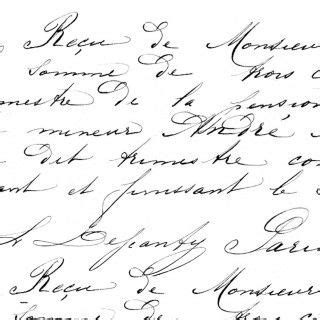 Reçu de Monsieur
somme de trois c
mestre de la pension
mineur André
dit trimestre co
ant et finissant le
Paris
Reçu de Monsieur
Somme de trois c